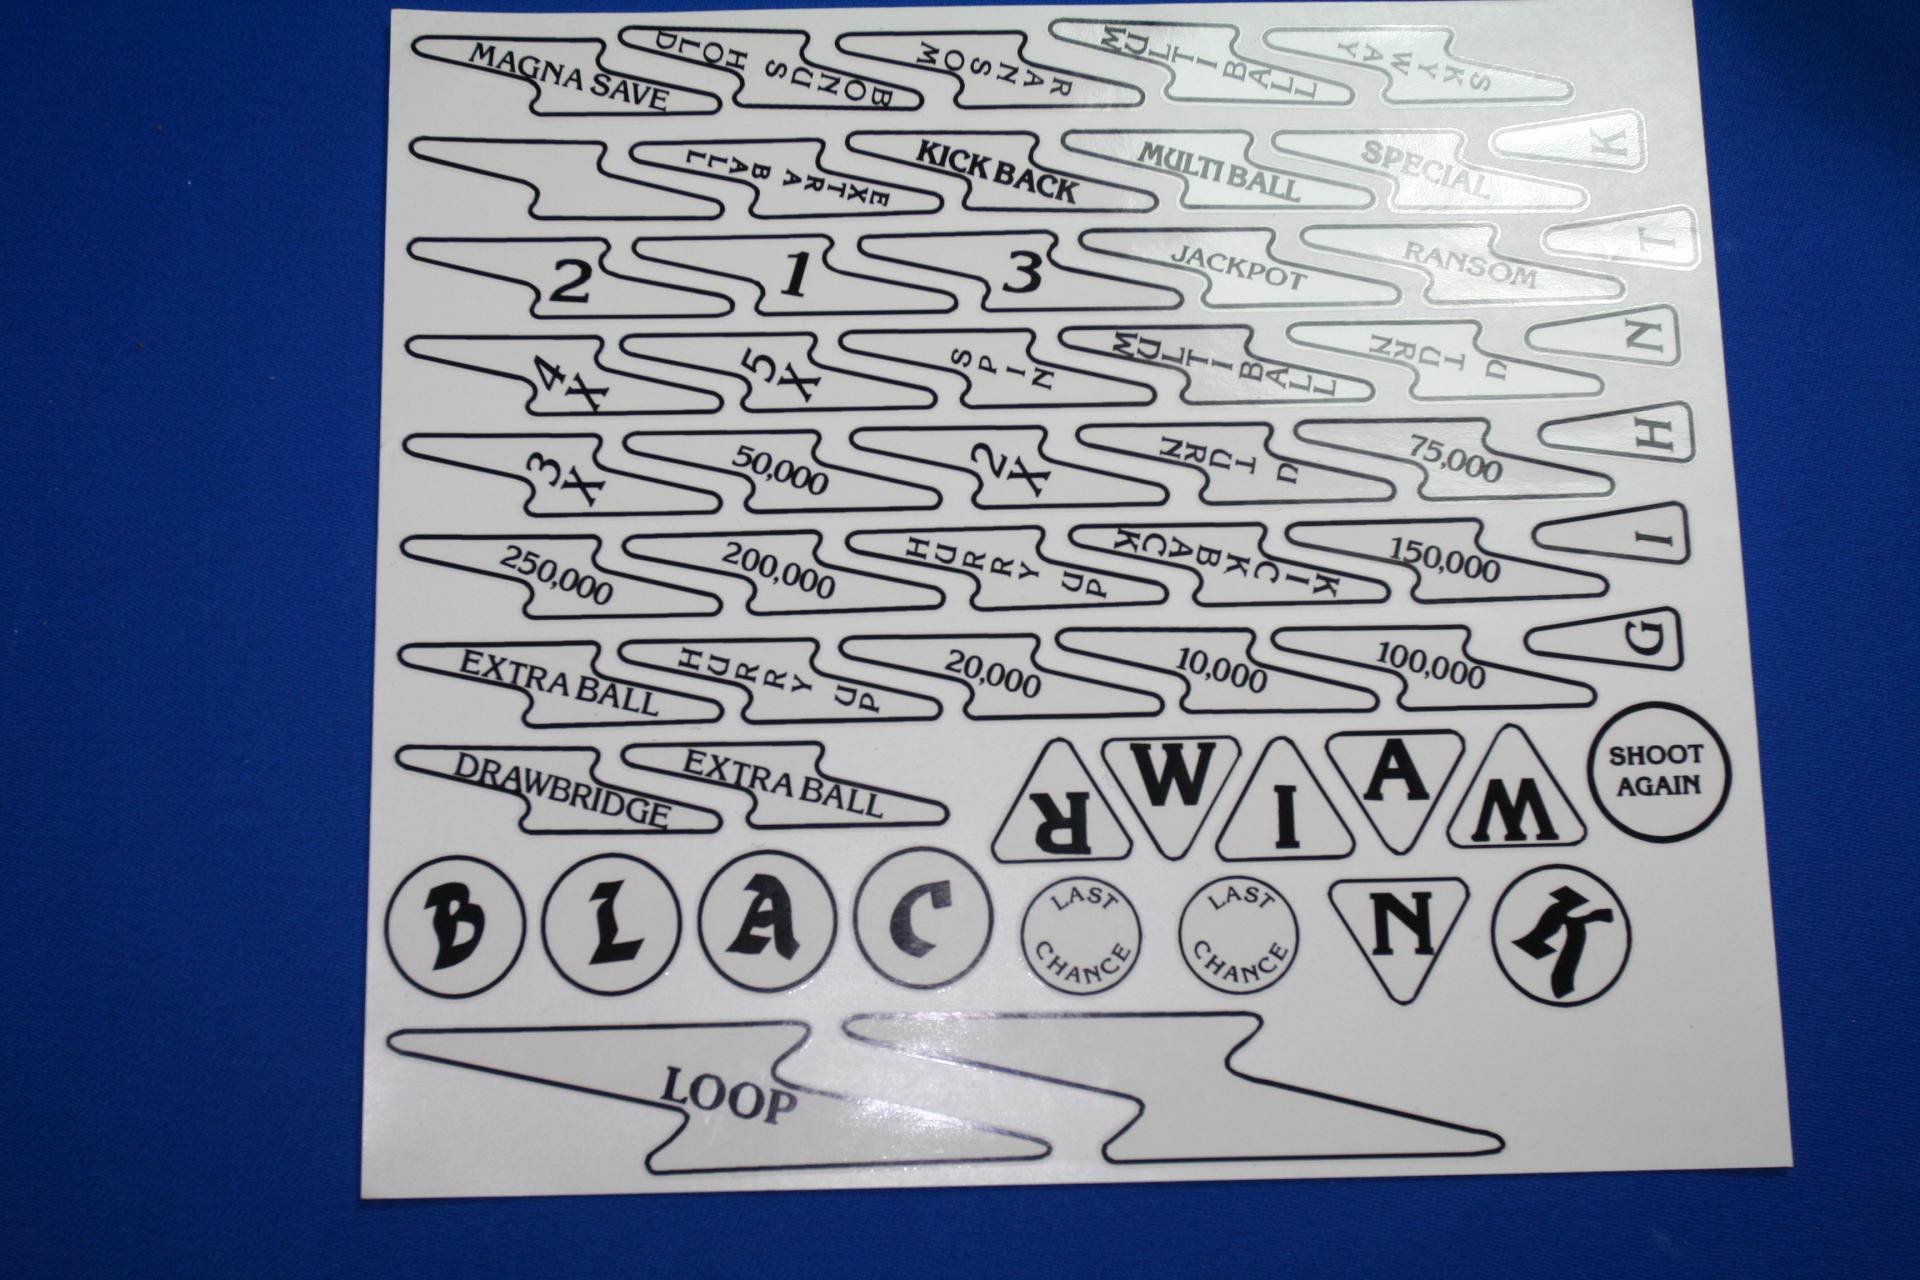 MAGNA SAVE
BONUS HOLD
RANSOM
MULTIBALL
SKYWAY
EXTRA BALL
KICK BACK
MULTIBALL
SPECIAL
K
2
1
3
JACKPOT
RANSOM
T
4X
5X
SPIN
MULTIBALL
U TURN
N
3X
50,000
2X
U TURN
75,000
H
250,000
200,000
HURRY UP
KICK BACK
150,000
I
EXTRA BALL
HURRY UP
20,000
10,000
100,000
G
DRAWBRIDGE
EXTRA BALL
R
W
I
A
W
SHOOT
AGAIN
B
L
A
C
LAST
CHANCE
LAST
CHANCE
N
K
LOOP